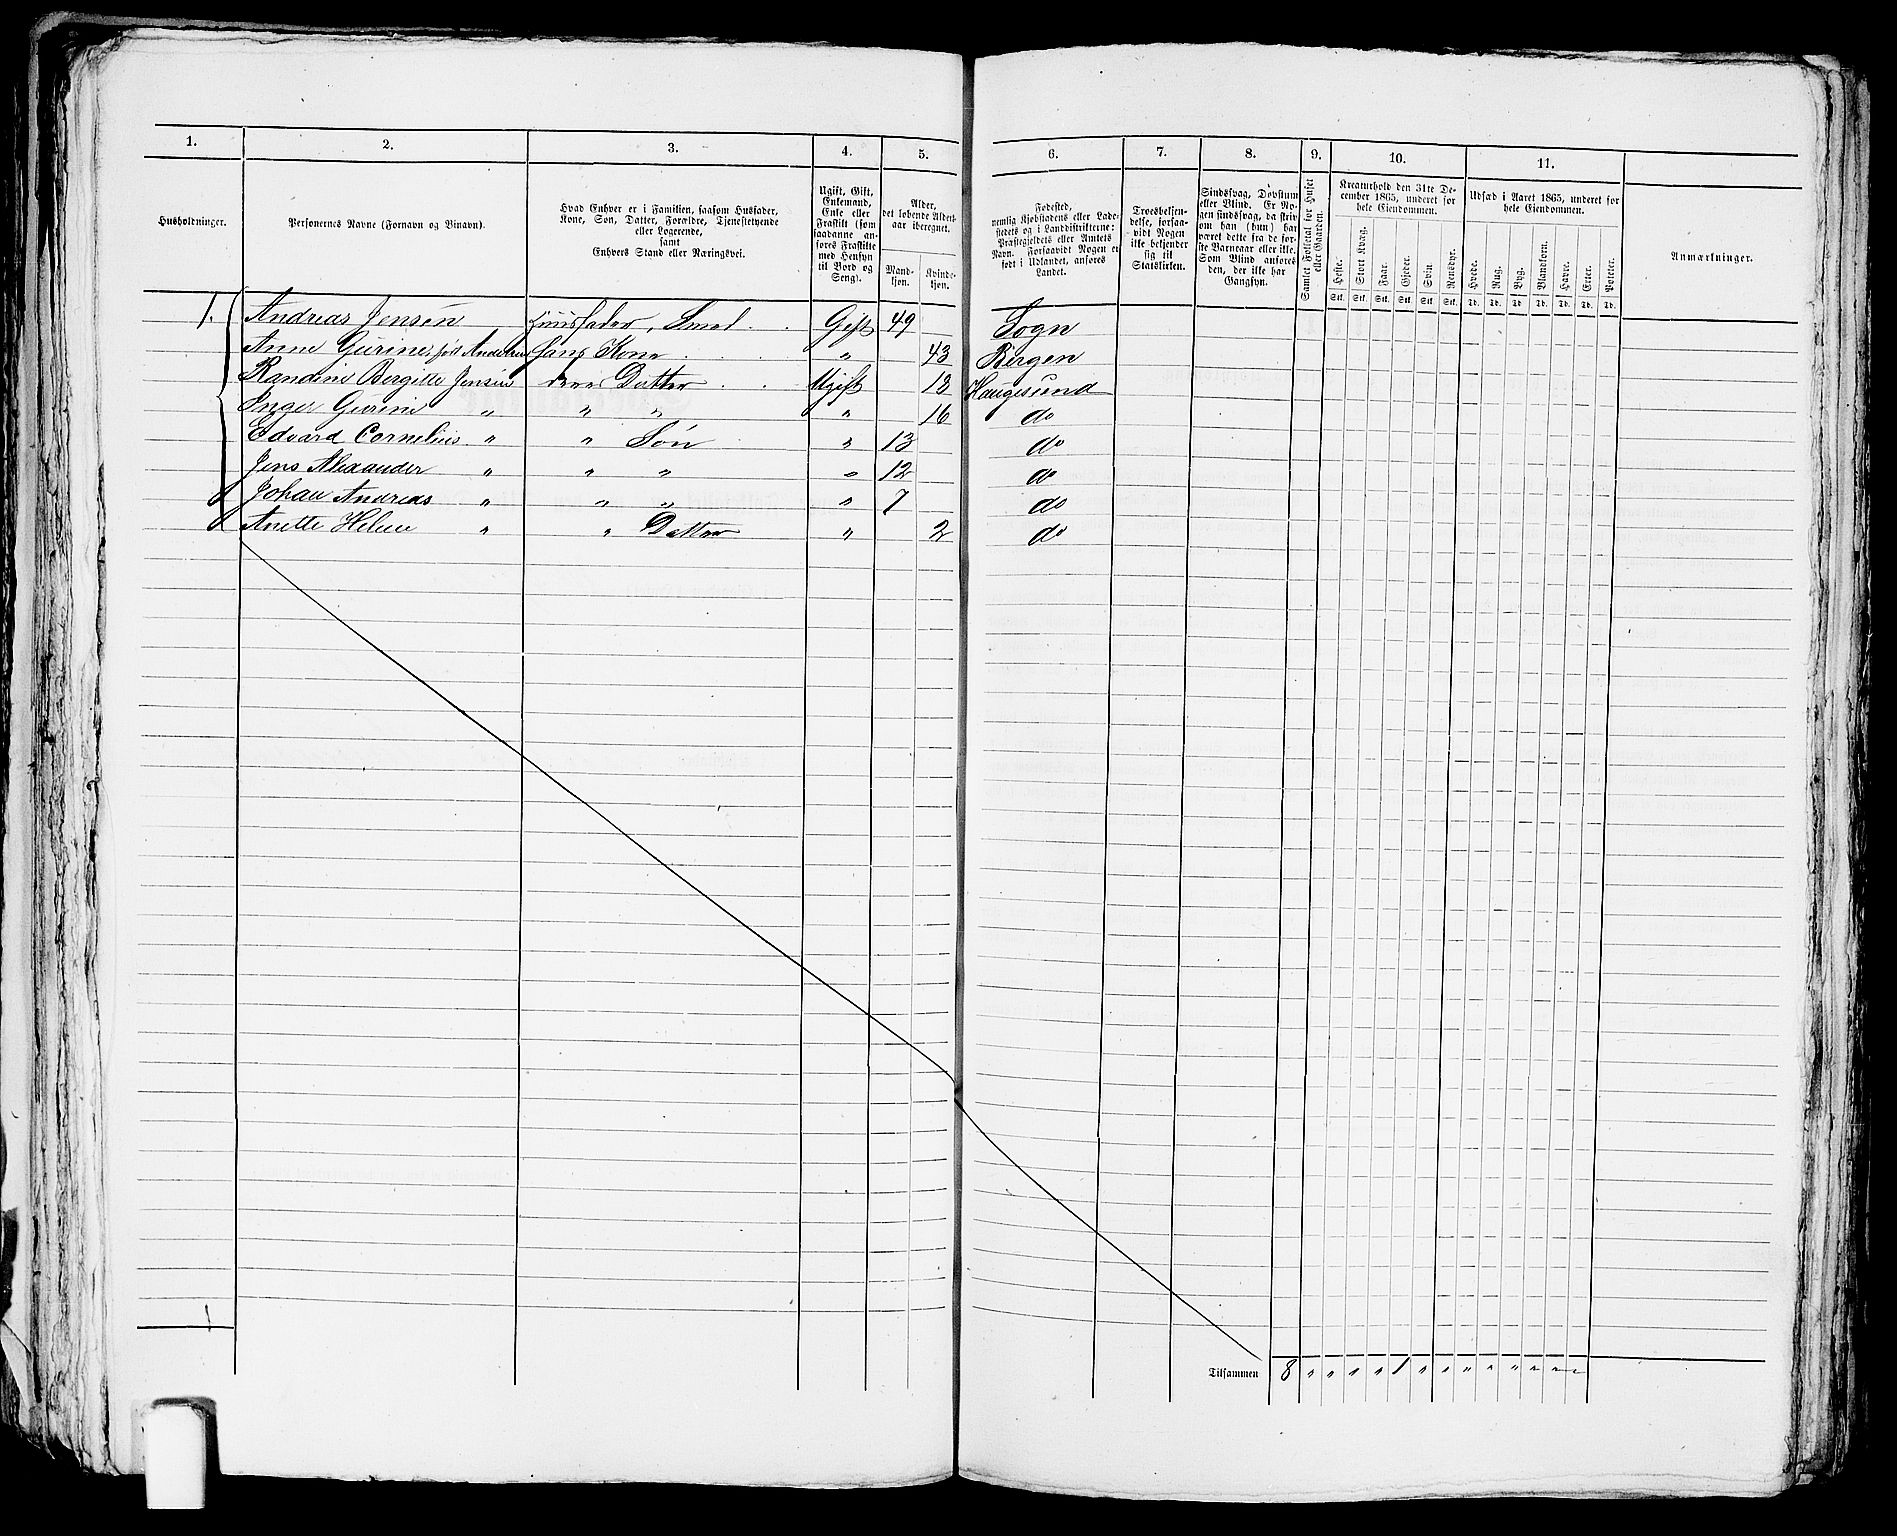 1. 2. 3. 4. 5. 6. 7. 8. 9. 10. 11.
Husholdninger.
Personernes Navne (Fornavn og Binavn).
Hvad Enhver er i Familien, saasom Husfader,
Kone, Søn, Datter, Forældre, Tjenestetyende
eller Logerende,
samt
Enhvers Stand eller Næringsvei.
Ugift, Gift,
Enkemand,
Enke eller
Fraskilt (som
saadanne an-
føres Fraskilte
med Hensyn
til Bord og
Seng).
Alder,
det løbende Alders-
aar iberegnet.
Mand-
kjøn.
Kvinde-
kjøn.
Fødested,
nemlig Kjøbstadens eller Lade-
stedets og i Landdistrikterne:
Præstegjeldets eller Amtets
Navn. Forsaavidt Nogen er
født i Udlandet, anføres
Landet.
Troesbekjen-
delse, forsaa-
vidt Nogen
ikke bekjender
sig til
Statskirken.
Sindssvag, Døvstum
eller Blind. Er No-
gen sindssvag, da skriv
om han (hun) har
været dette fra de før-
ste Barneaar eller ikke.
Som Blind anføres
den, der ikke har
Gangsyn.
Samlet Folketal for Huset
eller Gaarden.
Kreaturhold den 31te De-
cember 1865, underet for
hele Eiendommen.
Heste. Stort Kvæg. Faar. Gjeder. Svin. Rensdyr.
Stk. Stk. Stk. Stk. Stk. Stk.
Udsæd i Aaret 1865, underet for
hele Eiendommen.
Hvede. Rug. Byg. Blandkorn. Havre. Erter. Poteter.
Td. Td. Td. Td. Td. Td. Td.
Anmærkninger.
1. Andreas Jensen Huusfader, Smed Gift 49 Sogn
Anne Gurine, født Andersen hans Kone " 43 Bergen
Randine Bergitte Jensen deres Datter Ugift 18 Haugesund
Inger Gurine " " " " 16 do
Edvard Cornelius " " Søn " 13 do
Jens Alexander " " " " 12 do
Johan Andreas " " " " 7 do
Anette Helene " " Datter " 2 do
1
Tilsammen 8 " " " " 1 " " " " " " " "